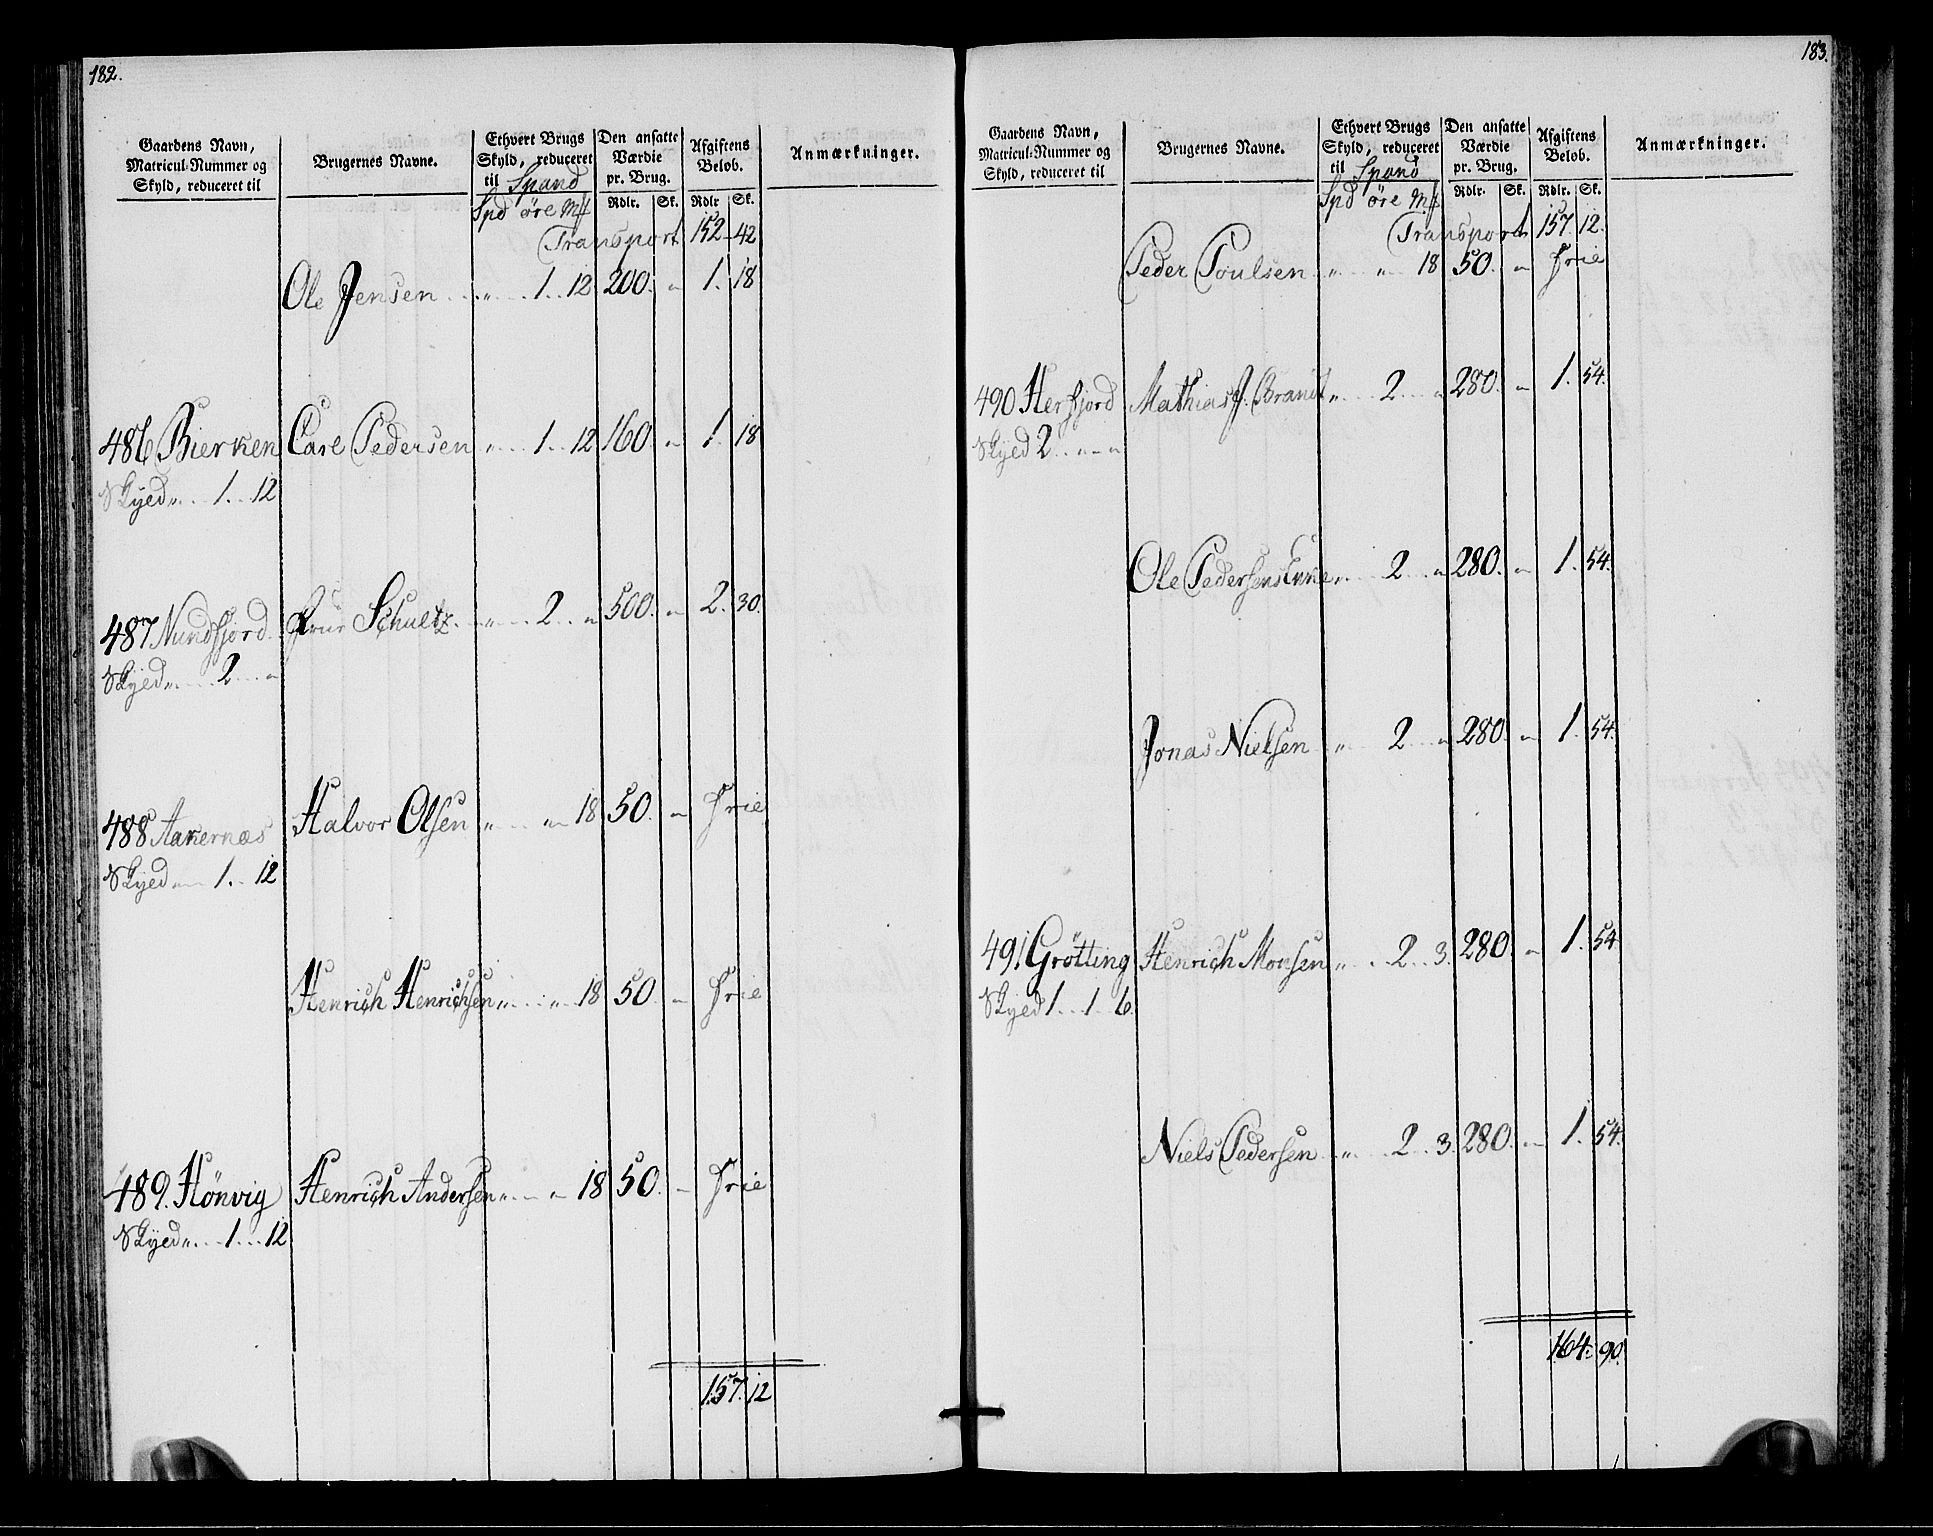 182.
Gaardens Navn, Matricul-Nummer og Skyld, reduceret til | Brugernes Navne. | Ethvert Brugs Skyld, reduceret til Spand | Den ansatte Værdie pr. Brug. | Afgiftens Beløb. | Anmærkninger.
Spd öre Mk | Rdlr. Sk. | Rdlr Sk.
Transport 152 42
Ole Jensen „ 1 12 200. „ 1. 18
486 Bierken Carl Pedersen „ 1 12 160 „ 1. 18
Skyld „ 1 12
487 Nundfjord Frue Schultz „ 2 „ 500. „ 2. 30.
Skyld „ 2 „
488 Aakernæs Halvor Olsen „ „ 18 50. „ Frie
Skyld „ 1 12
Henrich Henrichsen „ „ 18 50 „ Frie
489. Hönvig Henrich Andersen „ „ 18 50. „ Frie
Skyld „ 1 12
157. 12
183.
Gaardens Navn, Matricul-Nummer og Skyld, reduceret til | Brugernes Navne. | Ethvert Brugs Skyld, reduceret til Spand | Den ansatte Værdie pr. Brug. | Afgiftens Beløb. | Anmærkninger.
Spd öre Mk | Rdlr. Sk. | Rdlr. Sk.
Transport 157. 12.
Peder Poulsen „ „ 18 50. „ Frie
490 Herfjord Mathias J. Brandt „ 2 „ 280. „ 1. 54.
Skyld 2 „ „
Ole Pedersens Enke „ 2 „ 280. „ 1. 54.
Jonas Nielsen „ 2 „ 280. „ 1. 54.
491. Grötting Henrich Monsen „ 2 3. 280. „ 1. 54
Skyld 1 1 6.
Niels Pedersen „ 2 3. 280. „ 1. 54.
164. 90.